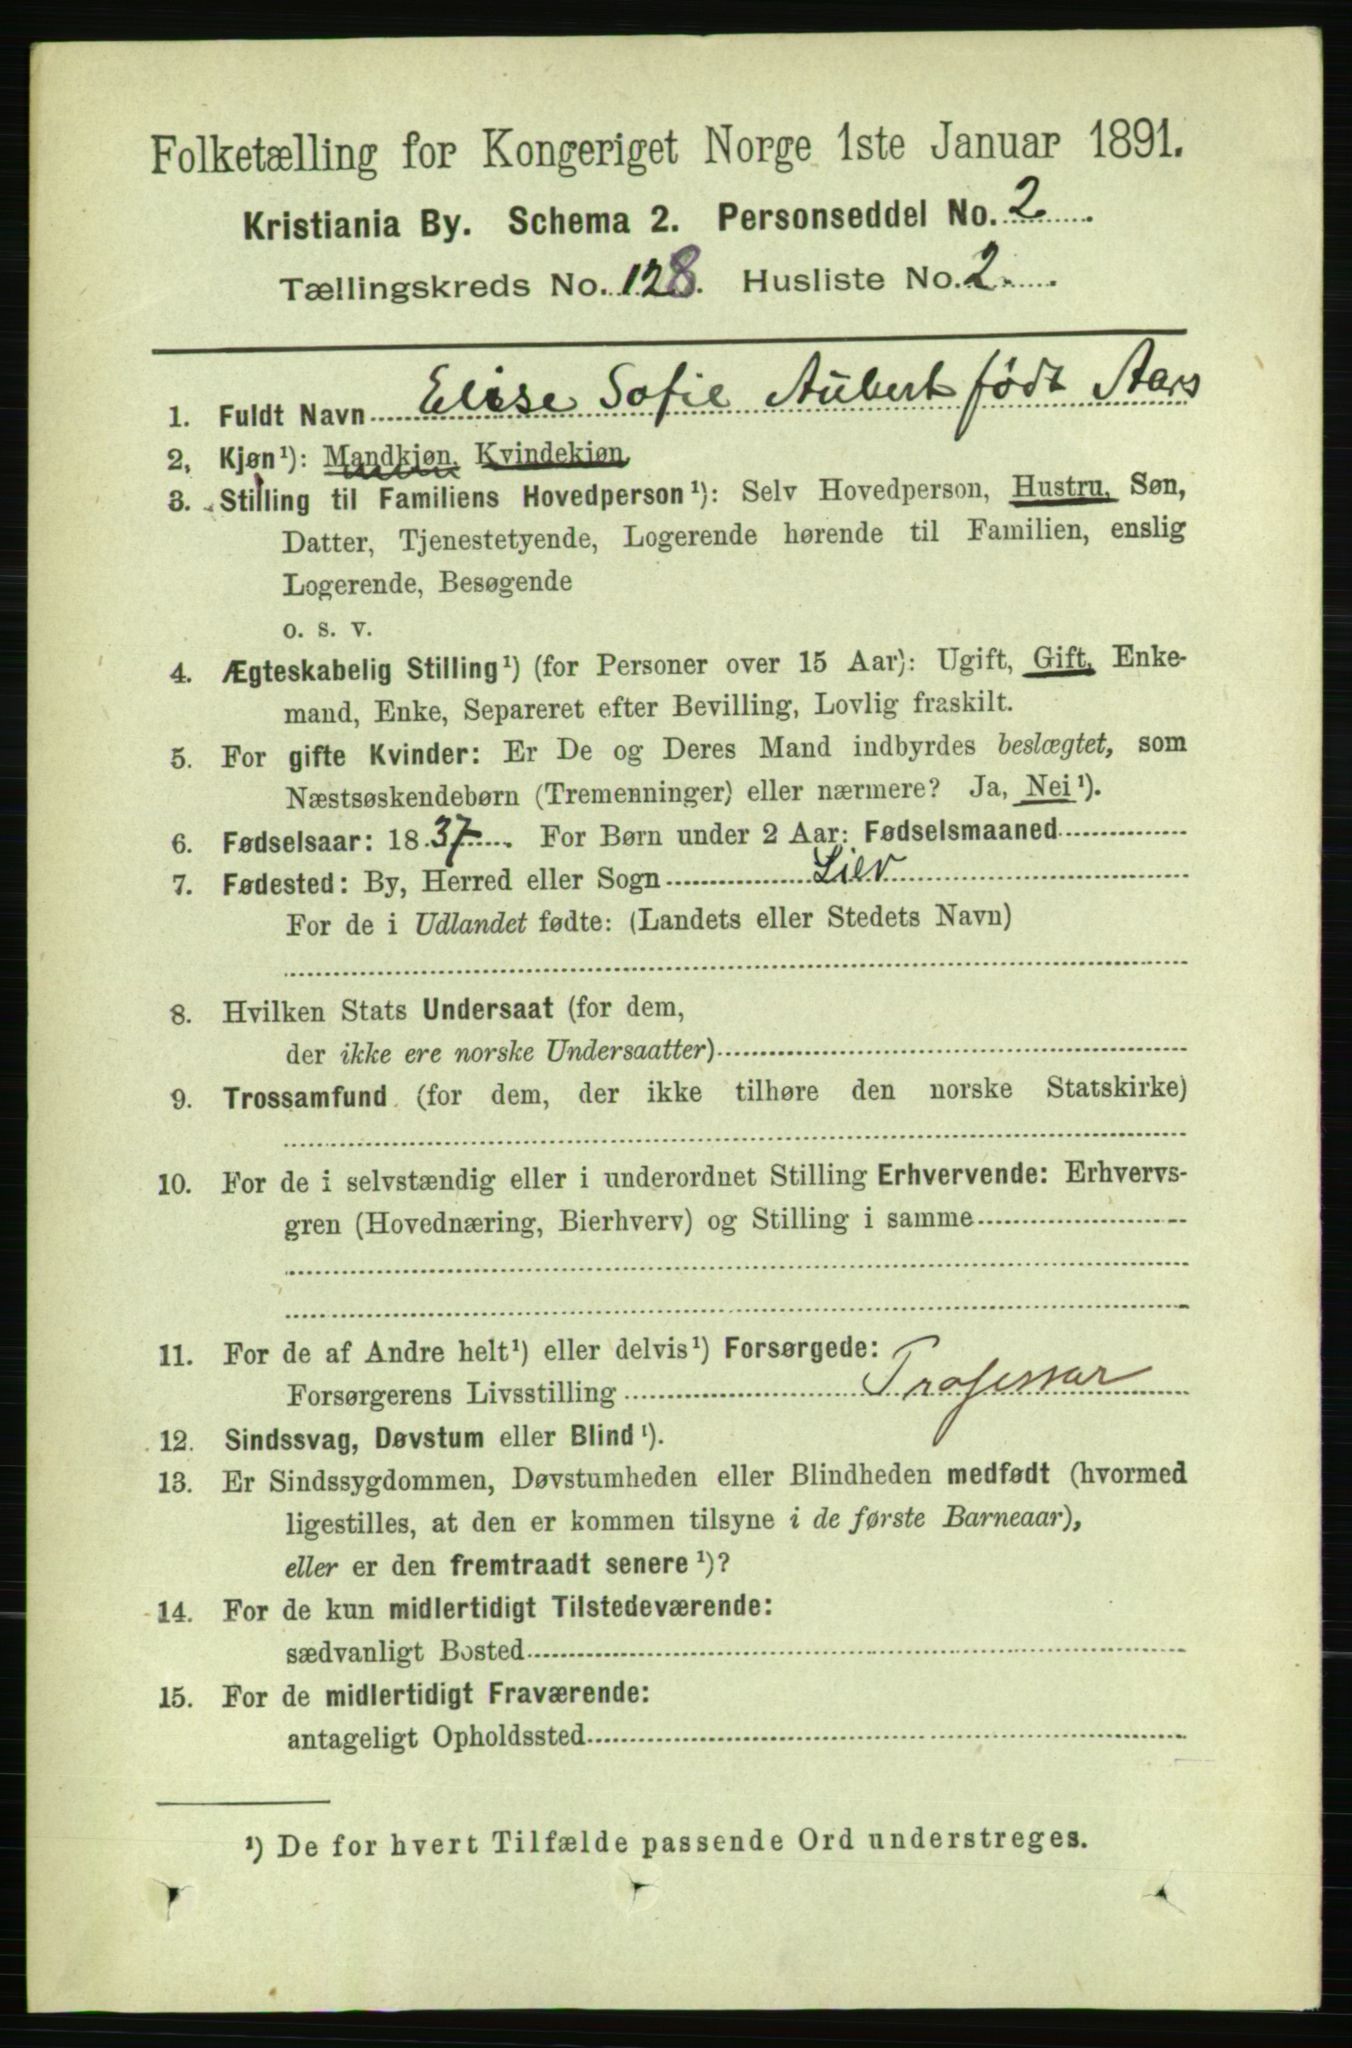 Folketælling for Kongeriget Norge 1ste Januar 1891.
Kristiania By. Schema 2. Personseddel No. 2
Tællingskreds No. 128. Husliste No. 2
1. Fuldt Navn Elise Sofie Aubert født Aars
2. Kjøn¹): Mandkjøn, Kvindekjøn
3. Stilling til Familiens Hovedperson¹): Selv Hovedperson, Hustru, Søn,
Datter, Tjenestetyende, Logerende hørende til Familien, enslig
Logerende, Besøgende
o. s. v.
4. Ægteskabelig Stilling¹) (for Personer over 15 Aar): Ugift, Gift, Enke-
mand, Enke, Separeret efter Bevilling, Lovlig fraskilt.
5. For gifte Kvinder: Er De og Deres Mand indbyrdes beslægtet, som
Næstsøskendebørn (Tremenninger) eller nærmere? Ja, Nei¹).
6. Fødselsaar: 1837. For Børn under 2 Aar: Fødselsmaaned
7. Fødested: By, Herred eller Sogn Lier
For de i Udlandet fødte: (Landets eller Stedets Navn)
8. Hvilken Stats Undersaat (for dem,
der ikke ere norske Undersaatter)
9. Trossamfund (for dem, der ikke tilhøre den norske Statskirke)
10. For de i selvstændig eller i underordnet Stilling Erhvervende: Erhvervs-
gren (Hovednæring, Bierhverv) og Stilling i samme
11. For de af Andre helt¹) eller delvis¹) Forsørgede:
Forsørgerens Livsstilling Professor
12. Sindssvag, Døvstum eller Blind¹).
13. Er Sindssygdommen, Døvstumheden eller Blindheden medfødt (hvormed
ligestilles, at den er kommen tilsyne i de første Barneaar),
eller er den fremtraadt senere¹)?
14. For de kun midlertidigt Tilstedeværende:
sædvanligt Bosted
15. For de midlertidigt Fraværende:
antageligt Opholdssted
¹) De for hvert Tilfælde passende Ord understreges.